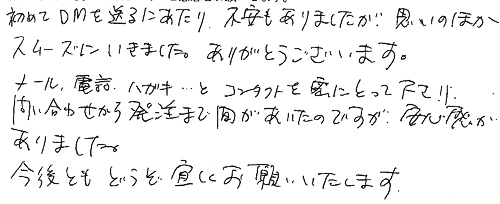 初めてDMを送るにあたり、不安もありましたが、思いのほか
スムーズにいきました。ありがとうございます。
メール、電話、ハガキ…とコンタクトを密にとって下さり、
問い合わせから発送まで間があいたのですが、安心感が
ありました。
今後ともどうぞ宜しくお願いいたします。